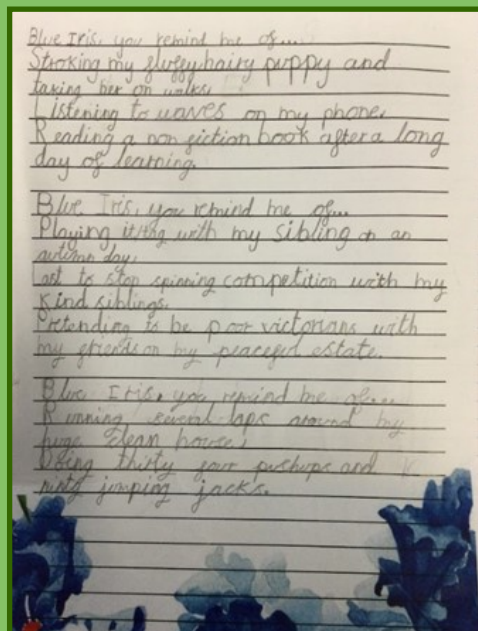 Blue Iris, you remind me of...
Stroking my fluffy hairy puppy and
taking her on walks.
Listening to waves on my phone.
Reading a non fiction book after a long
day of learning.
Blue Iris, you remind me of...
Playing it/tag with my sibling on an
autumn day.
Last to stop spinning competition with my
kind siblings.
Pretending to be poor victorians with
my friends on my peaceful estate.
Blue Iris, you remind me of...
Running several laps around my
huge clean house.
Doing thirty four pushups and
ninty jumping jacks.